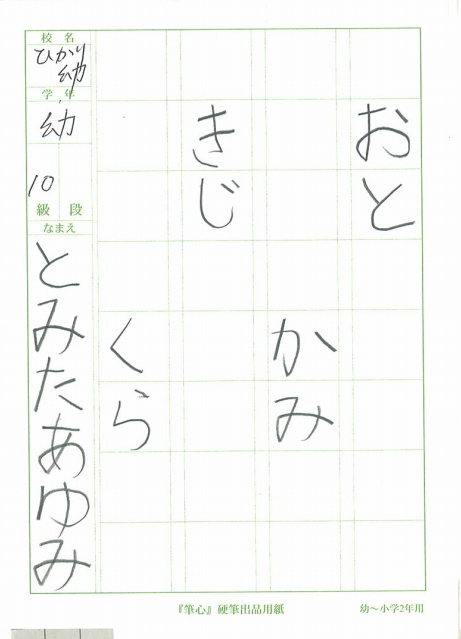 おと
かみ
きじ
くら
校名
ひかり幼
学年
幼
10
級 段
なまえ
とみたあゆみ
『筆心』硬筆出品用紙
幼〜小学2年用